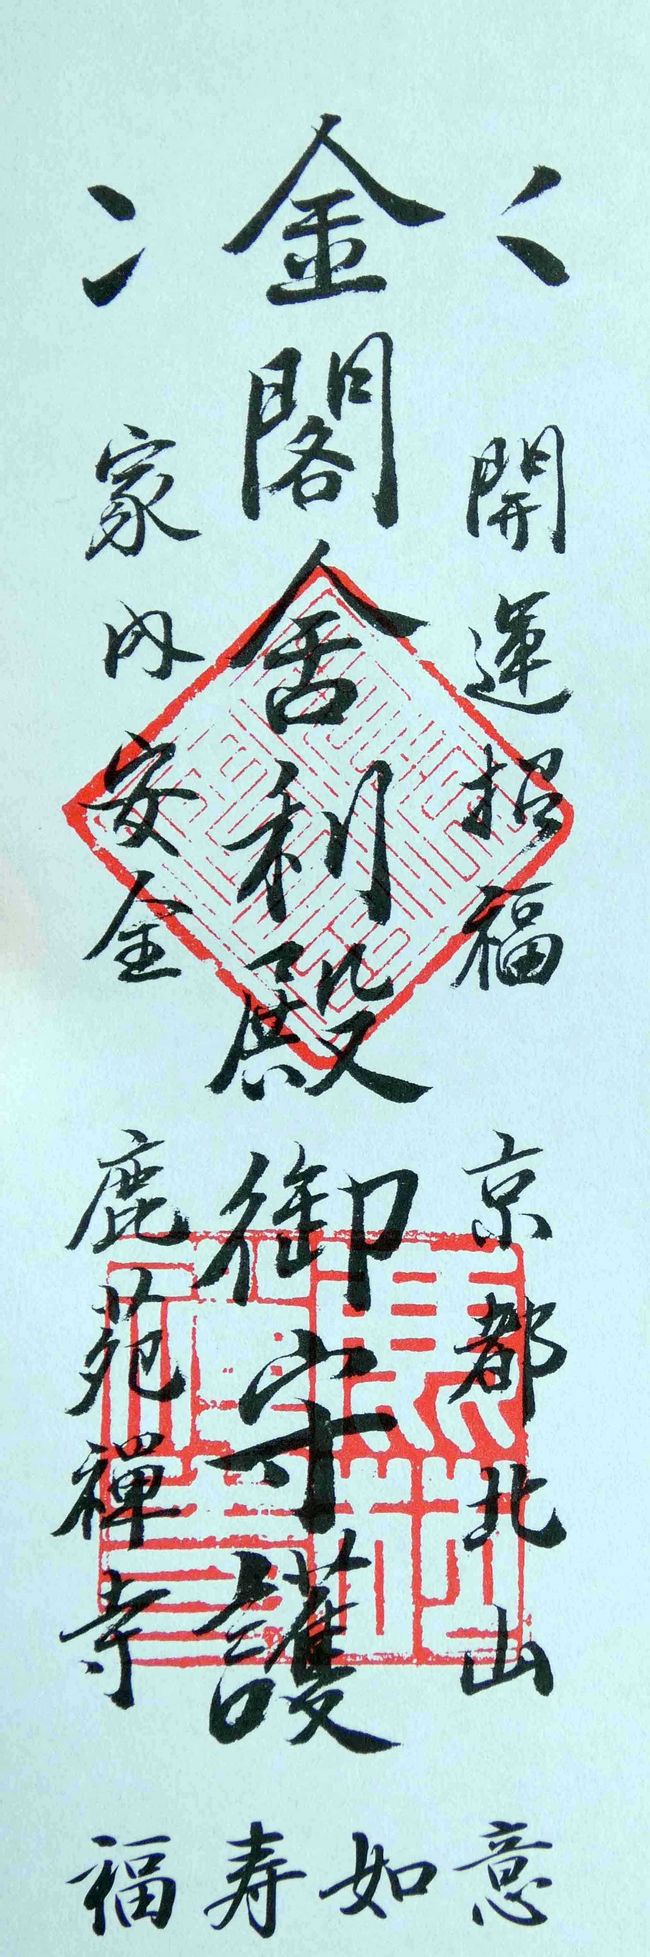 開運招福 京都北山
金閣舍利殿御守護
家内安全 鹿苑禪寺
福寿如意